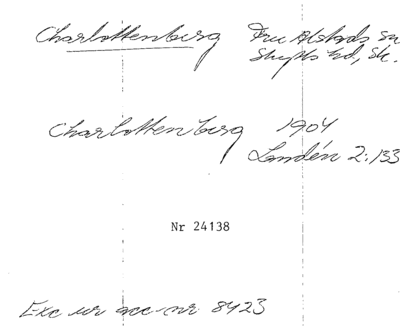 Charlottenberg Fru Alstads sn
Skytts hd, Sk.
Charlottenberg 1904
Landén 2:133
Nr 24138
Exc ur acc-nr 8423